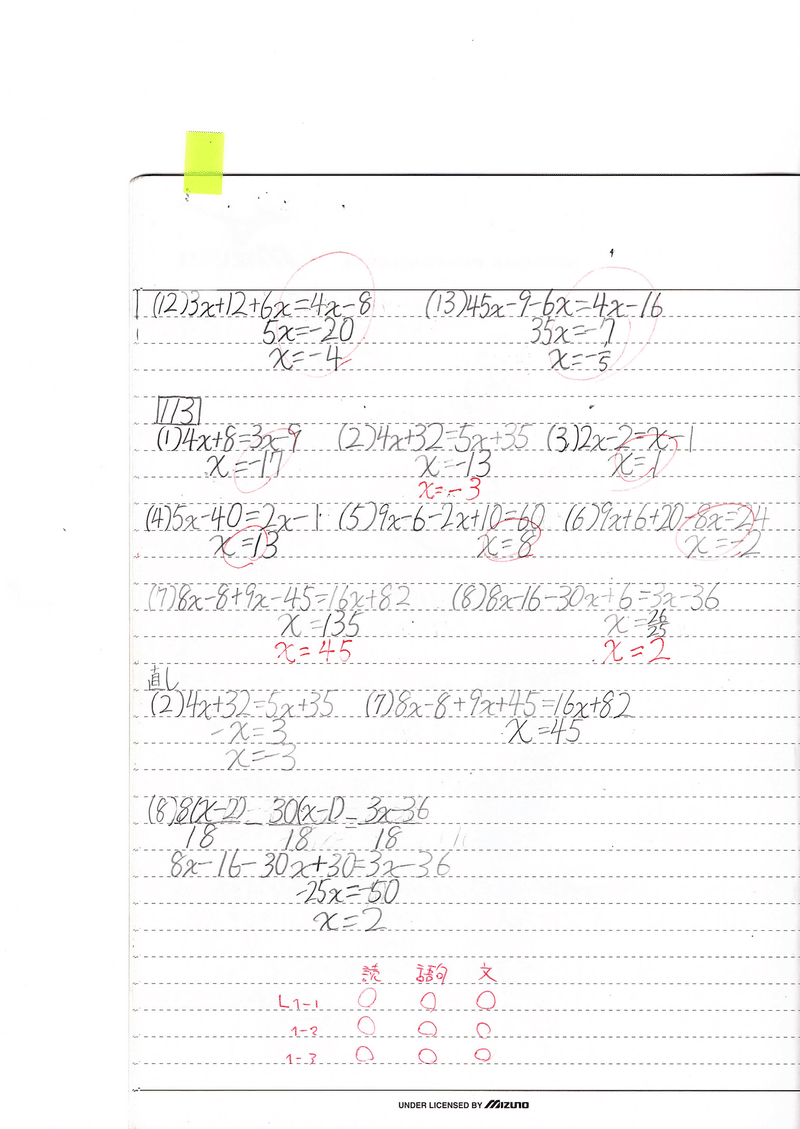 (12)3x+12+6x=4x-8 (13)45x-9-6x=4x-16
5x=-20 35x=-7
x=-4 x=-5
113
(1)4x+8=3x-9 (2)4x+32=5x+35 (3)2x-2=x-1
x=-17 x=-13 x=1
x=-3
(4)5x-40=2x-1 (5)9x-6-2x+10=60 (6)9x+6+20-8x=24
x=13 x=8 x=-2
(7)8x-8+9x-45=16x+82 (8)8x-16-30x+6=3x-36
x=135 x=26/25
x=45 x=2
直し
(2)4x+32=5x+35 (7)8x-8+9x+45=16x+82
-x=3 x=45
x=-3
(8)8(x-2)/18-30(x-1)/18=3x-36/18
8x-16-30x+30=3x-36
-25x=-50
x=2
読 語句 文
L1-1 ○ ○ ○
1-2 ○ ○ ○
1-3 ○ ○ ○
UNDER LICENSED BY MIZUNO